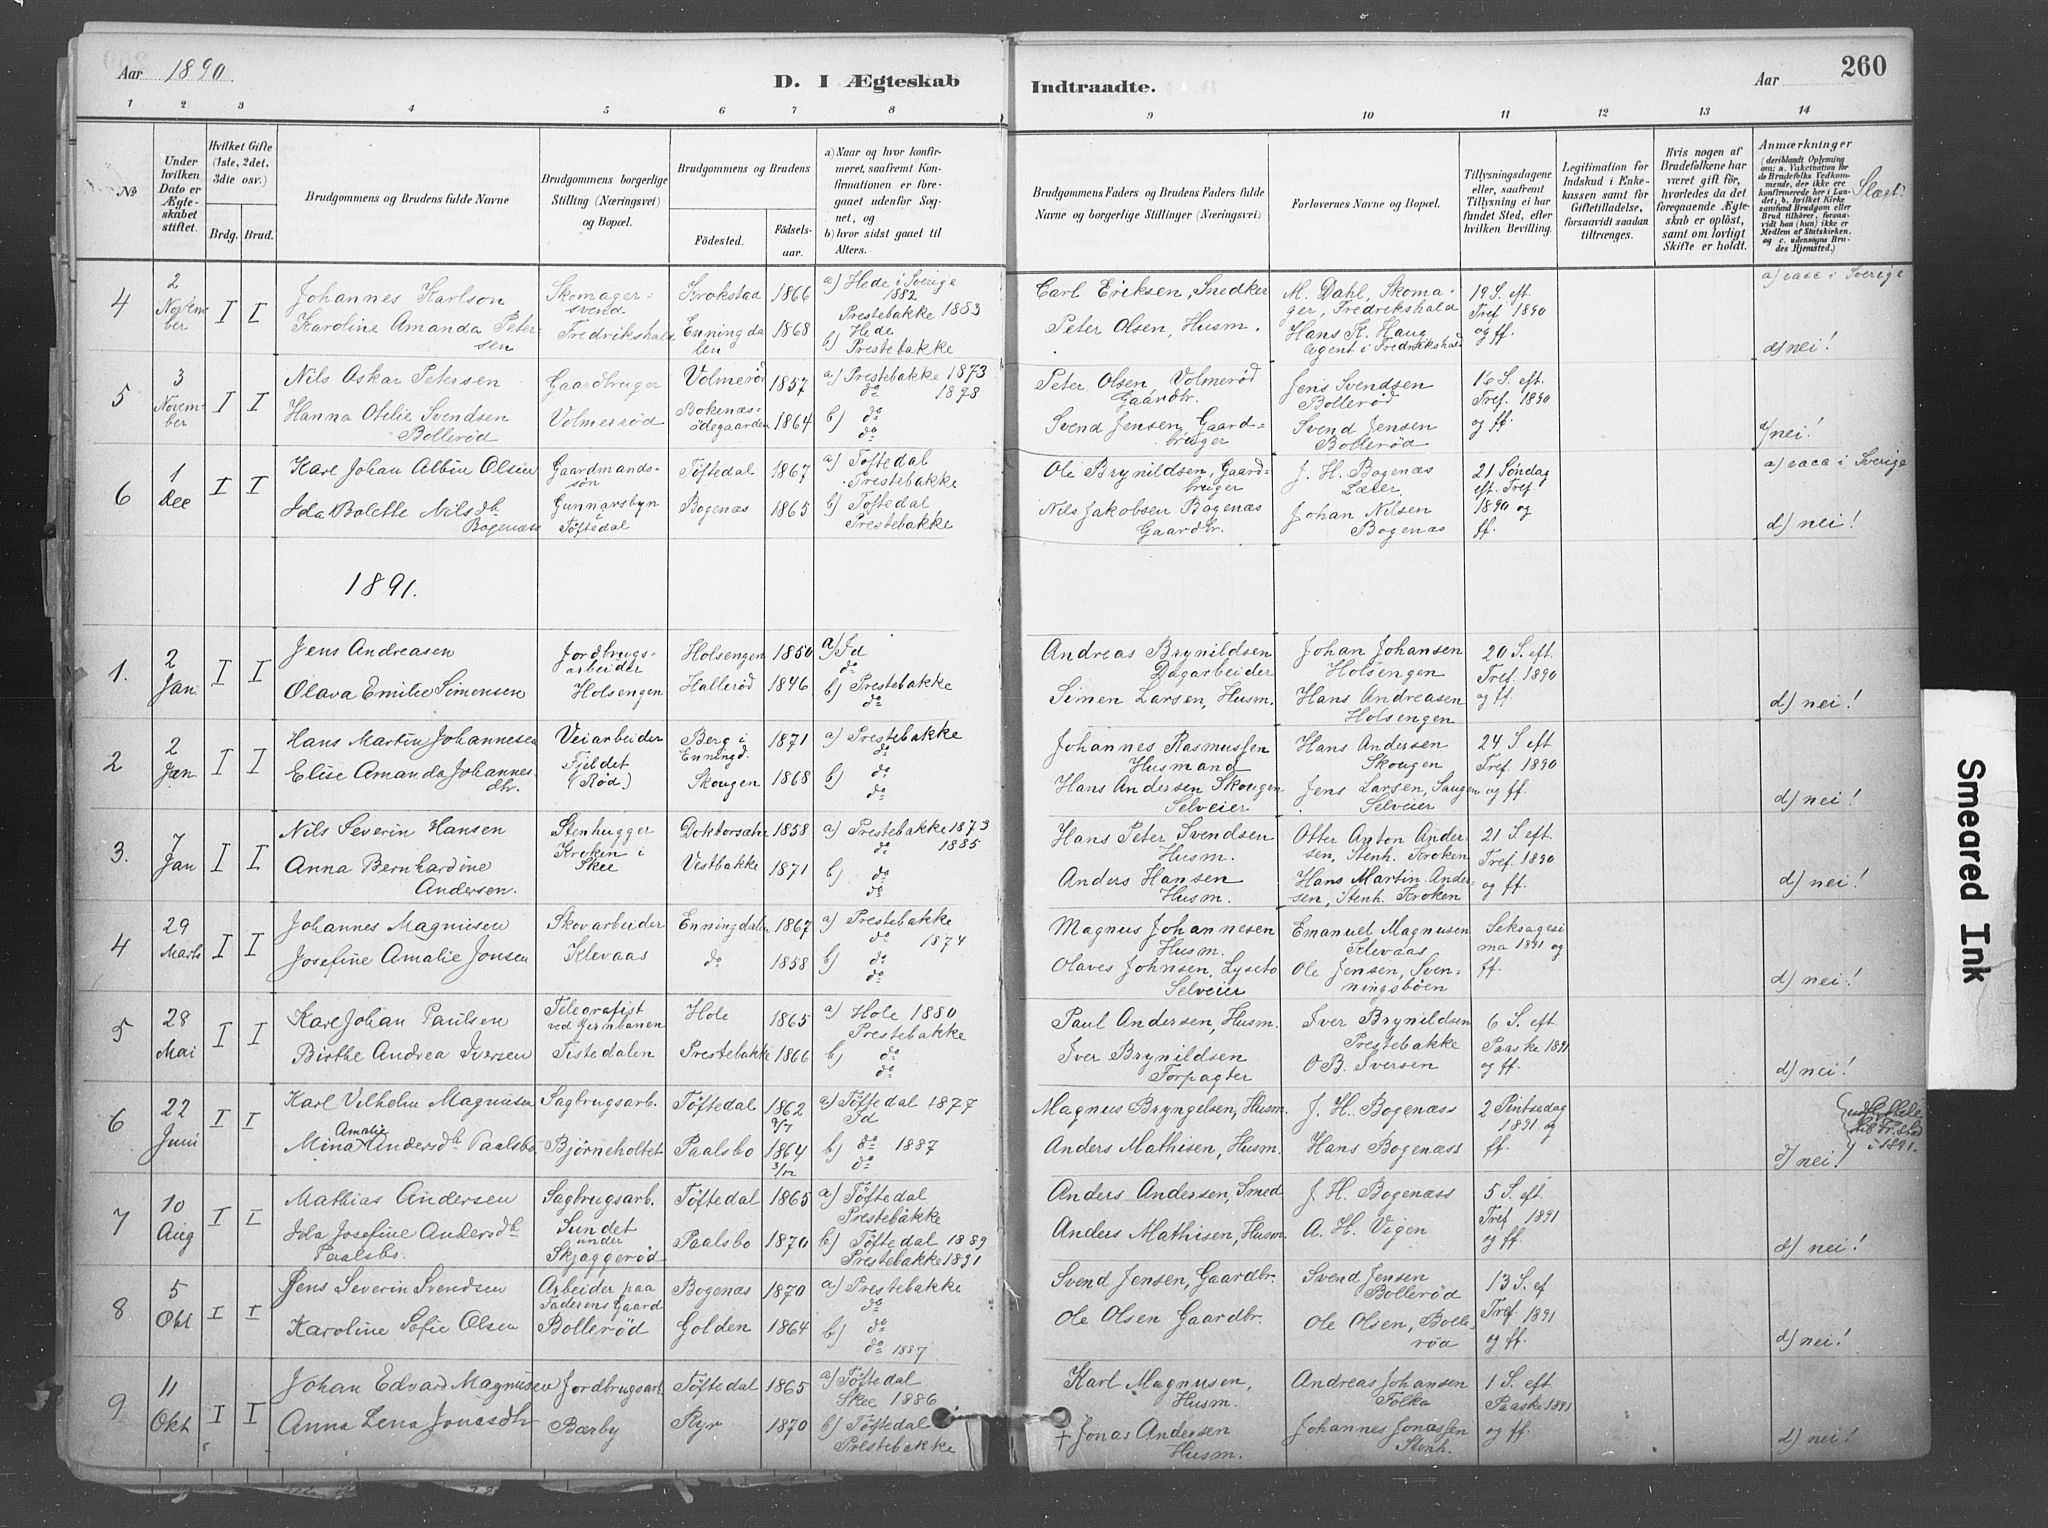 Aar 1890.
D. I Ægteskab Indtraadte.
Aar
260
1 2 3 4 5 6 7 8 9 10 11 12 13 14
No
Under hvilken Dato er Ægteskabet stiftet.
Hvilket Gifte (1ste, 2det, 3die osv.)
Brdg. Brud.
Brudgommens og Brudens fulde Navne
Brudgommens borgerlige Stilling (Næringsvei) og Bopæl.
Brudgommens og Brudens
Fødested.
Fødselsaar.
a) Naar og hvor konfirmeret, saafremt Konfirmationen er foregaaet udenfor Sognet, og
b) hvor sidst gaaet til Alters.
Brudgommens Faders og Brudens Faders fulde Navne og borgerlige Stillinger (Næringsvei)
Forlovernes Navne og Bopæl.
Tillysningsdagene eller, saafremt Tillysning ei har fundet Sted, efter hvilken Bevilling.
Legitimation for Indskud i Enkekassen samt for Giftetilladelse, forsaavidt saadan tiltrænges.
Hvis nogen af Brudefolkene har været gift før, hvorledes da det foregaaende Ægteskab er opløst, samt om lovligt Skifte er holdt.
Anmærkninger (deriblandt Oplysning om: a. Vakcination for de Brudefolks Vedkommende, der ikke ere konfirmerede her i Landet; b. hvilket Kirkesamfund Brudgom eller Brud tilhører, forsaavidt han (hun) ikke er Medlem af Statskirken, og c. udensogns Brudes Hjemsted.)
Slægt
4
2 November
I I
Johannes Karlson
Karoline Amanda Petersen
Skomagersvend
Fredrikshald
Krokstad 1866
Enningdalen 1868
a) Hede i Sverige 1882
Prestebakke 1883
b) Hede
Prestebakke
Carl Eriksen, Snedker
Peter Olsen, Husm.
M. Dahl, Skomager, Fredrikshald
Hans K. Haug
Agent i Fredrikshald
19 S. eft. Tref. 1890 og ff.
a) vacc i Sverige
d) nei!
5
3 November
I I
Nils Oskar Petersen
Hanna Otelie Svendsen
Bollerød
Gaardbruger
Volmerød
Volmerød 1857
Bokenæsødegaarden 1864
a) Prestebakke 1873
do 1878
b) do
do
Peter Olsen, Volmerød
Gaardbr.
Svend Jensen, Gaardbruger
Jens Svendsen
Bollerød
Svend Jensen
Bollerød
16 S. eft. Tref. 1890 og ff
nei!
6
1 Dec
I I
Karl Johan Albin Olsen
Ida Bolette Nilsdtr Bogenæs
Gaardmandssøn
Gunnarsbyn i
Töftedal
Töftedal 1867
Bogenæs 1865
a) Töftedal
Prestebakke
b) Töftedal
Prestebakke
Ole Brynildsen, Gaardbruger
Nils Jakobsen Bogenæs
Gaardbr.
J. H. Bogenæs
Lærer
Johan Nilsen
Bogenæs
21 Søndag eft. Tref. 1890 og ff.
a) vacc i Sverige
d) nei!
1891.
1.
2 Jan.
I I
Jens Andreasen
Olava Emilie Simensen
Jordbrugsarbeider
Holsengen
Holsengen 1850
Hallerød 1846
a) Id
do
b) Prestebakke
do
Andreas Brynildsen
Dagarbeider
Simen Larsen, Husm.
Johan Johansen
Holsengen
Hans Andreasen
Holsengen
20 S. eft. Tref. 1890 og ff.
d) nei!
2
2 Jan
I I
Hans Martin Johannesen
Elise Amanda Johannesdtr.
Veiarbeider
Fjeldet
(Rød)
Berg i Enningd. 1871
Skougen 1868
a) Prestebakke
do
b) do
do
Johannes Rasmussen
Husmand
Hans Andersen Skougen
Selveier
Hans Andersen
Skougen
Jens Larsen, Saugen
Selveier
24 S. eft Tref. 1890 og ff.
d) nei!
3.
7 Jan
I I
Nils Severin Hansen
Anna Bernhardine
Andersen.
Stenhugger
Kroken i
Skee
Doktorsætr 1858
Vestbakke 1871
a) Prestebakke 1873
do 1885
b) do
do
Hans Peter Svendsen
Husm.
Anders Hansen
Husm.
Otter Anton Andersen, Stenh. Kroken
Hans Martin Andersen, Stenh. Kroken
21 S. eft Tref. 1890 og ff.
d) nei!
4
29 Marts
I I
Johannes Magnusen
Josefine Amalie Jonsen
Skovarbeider
Klevaas
Enningdalen 1867
do 1858
a) Prestebakke
do 1874
b) do
do
Magnus Johannesen
Husm.
Olaves Johnsen, Lyseto
Selveier
Emanuel Magnusen
Klevaas
Ole Jensen, Svenningsbøen
Seksagesima 1891 og ff.
d) nei!
5
28 Mai
I I
Karl Johan Paulsen
Birthe Andrea Iversen
Telegrafist
ved Jernbanen
Tistedalen
Hole 1865
Prestebakke 1866
a) Hole 1880
Prestebakke
b) do
do
Paul Andersen, Husm.
Iver Brynildsen
Forpagter
Iver Brynildsen
Prestebakke
O B. Iversen
6 S. eft Paaske 1891 og ff
d) nei!
6
22 Juni
I I
Karl Vilhelm Magnusen
Mina Amalie Andersdtr Paalsbo
Sagbrugsarb.
Bjørneholtet
Töftedal 1862 9/7
Paalsbo 1864 3/12
a) Töftedal 1877
Id
b) do 1887
do
Magnus Bryngelsen, Husm.
Anders Mathisen, Husm.
J. H. Bogenæss
Hans Bogenæss
2 Pintsedag 1891 og ff.
udflyttede til Fr.stad i 1891.
d) nei!
7
10 Aug
I I
Mathias Andersen
Ida Josefine Andersdtr
Paalsbo.
Sagbrugsarb.
Sundet
under
Skjaggerød
Töftedal 1865
Paalsbo 1870
a) Töftedal
Prestebakke
b) Töftedal 1889
Prestebakke 1891
Anders Andersen, Smed
Anders Mathisen, Husm
J. H. Bogenæss
A. H. Vigen
5 S. eft. Tref 1891 og ff
d) nei!
8
5 Okt
I I
Jens Severin Svendsen
Karoline Sofie Olsen
Arbeider paa
Faderens Gaard
Bollerød
Bogenæs 1870
Golden 1864
a) Prestebakke
do
b) do
do 1887
Svend Jensen, Gaardbr.
Ole Olsen Gaardbr.
Svend Jensen
Bollerød
Ole Olsen, Bollerød
13 S. ef Tref. 1891 og ff.
d) nei!
9
11 Okt
I I
Johan Edvard Magnusen
Anna Lena Jonasdtr
Jordbrugsarb.
Bærby
Töftedal 1865
Kyr 1870
a) Töftedal
Skee 1886
b) Töftedal
Prestebakke
Karl Magnusen,
Husm.
+ Jonas Andersen
Husm.
Andreas Johansen
Folka
Johannes Jonassen
Stenh.
1 S. eft Paaske 1891 og ff.
d) nei!
Smeared Ink